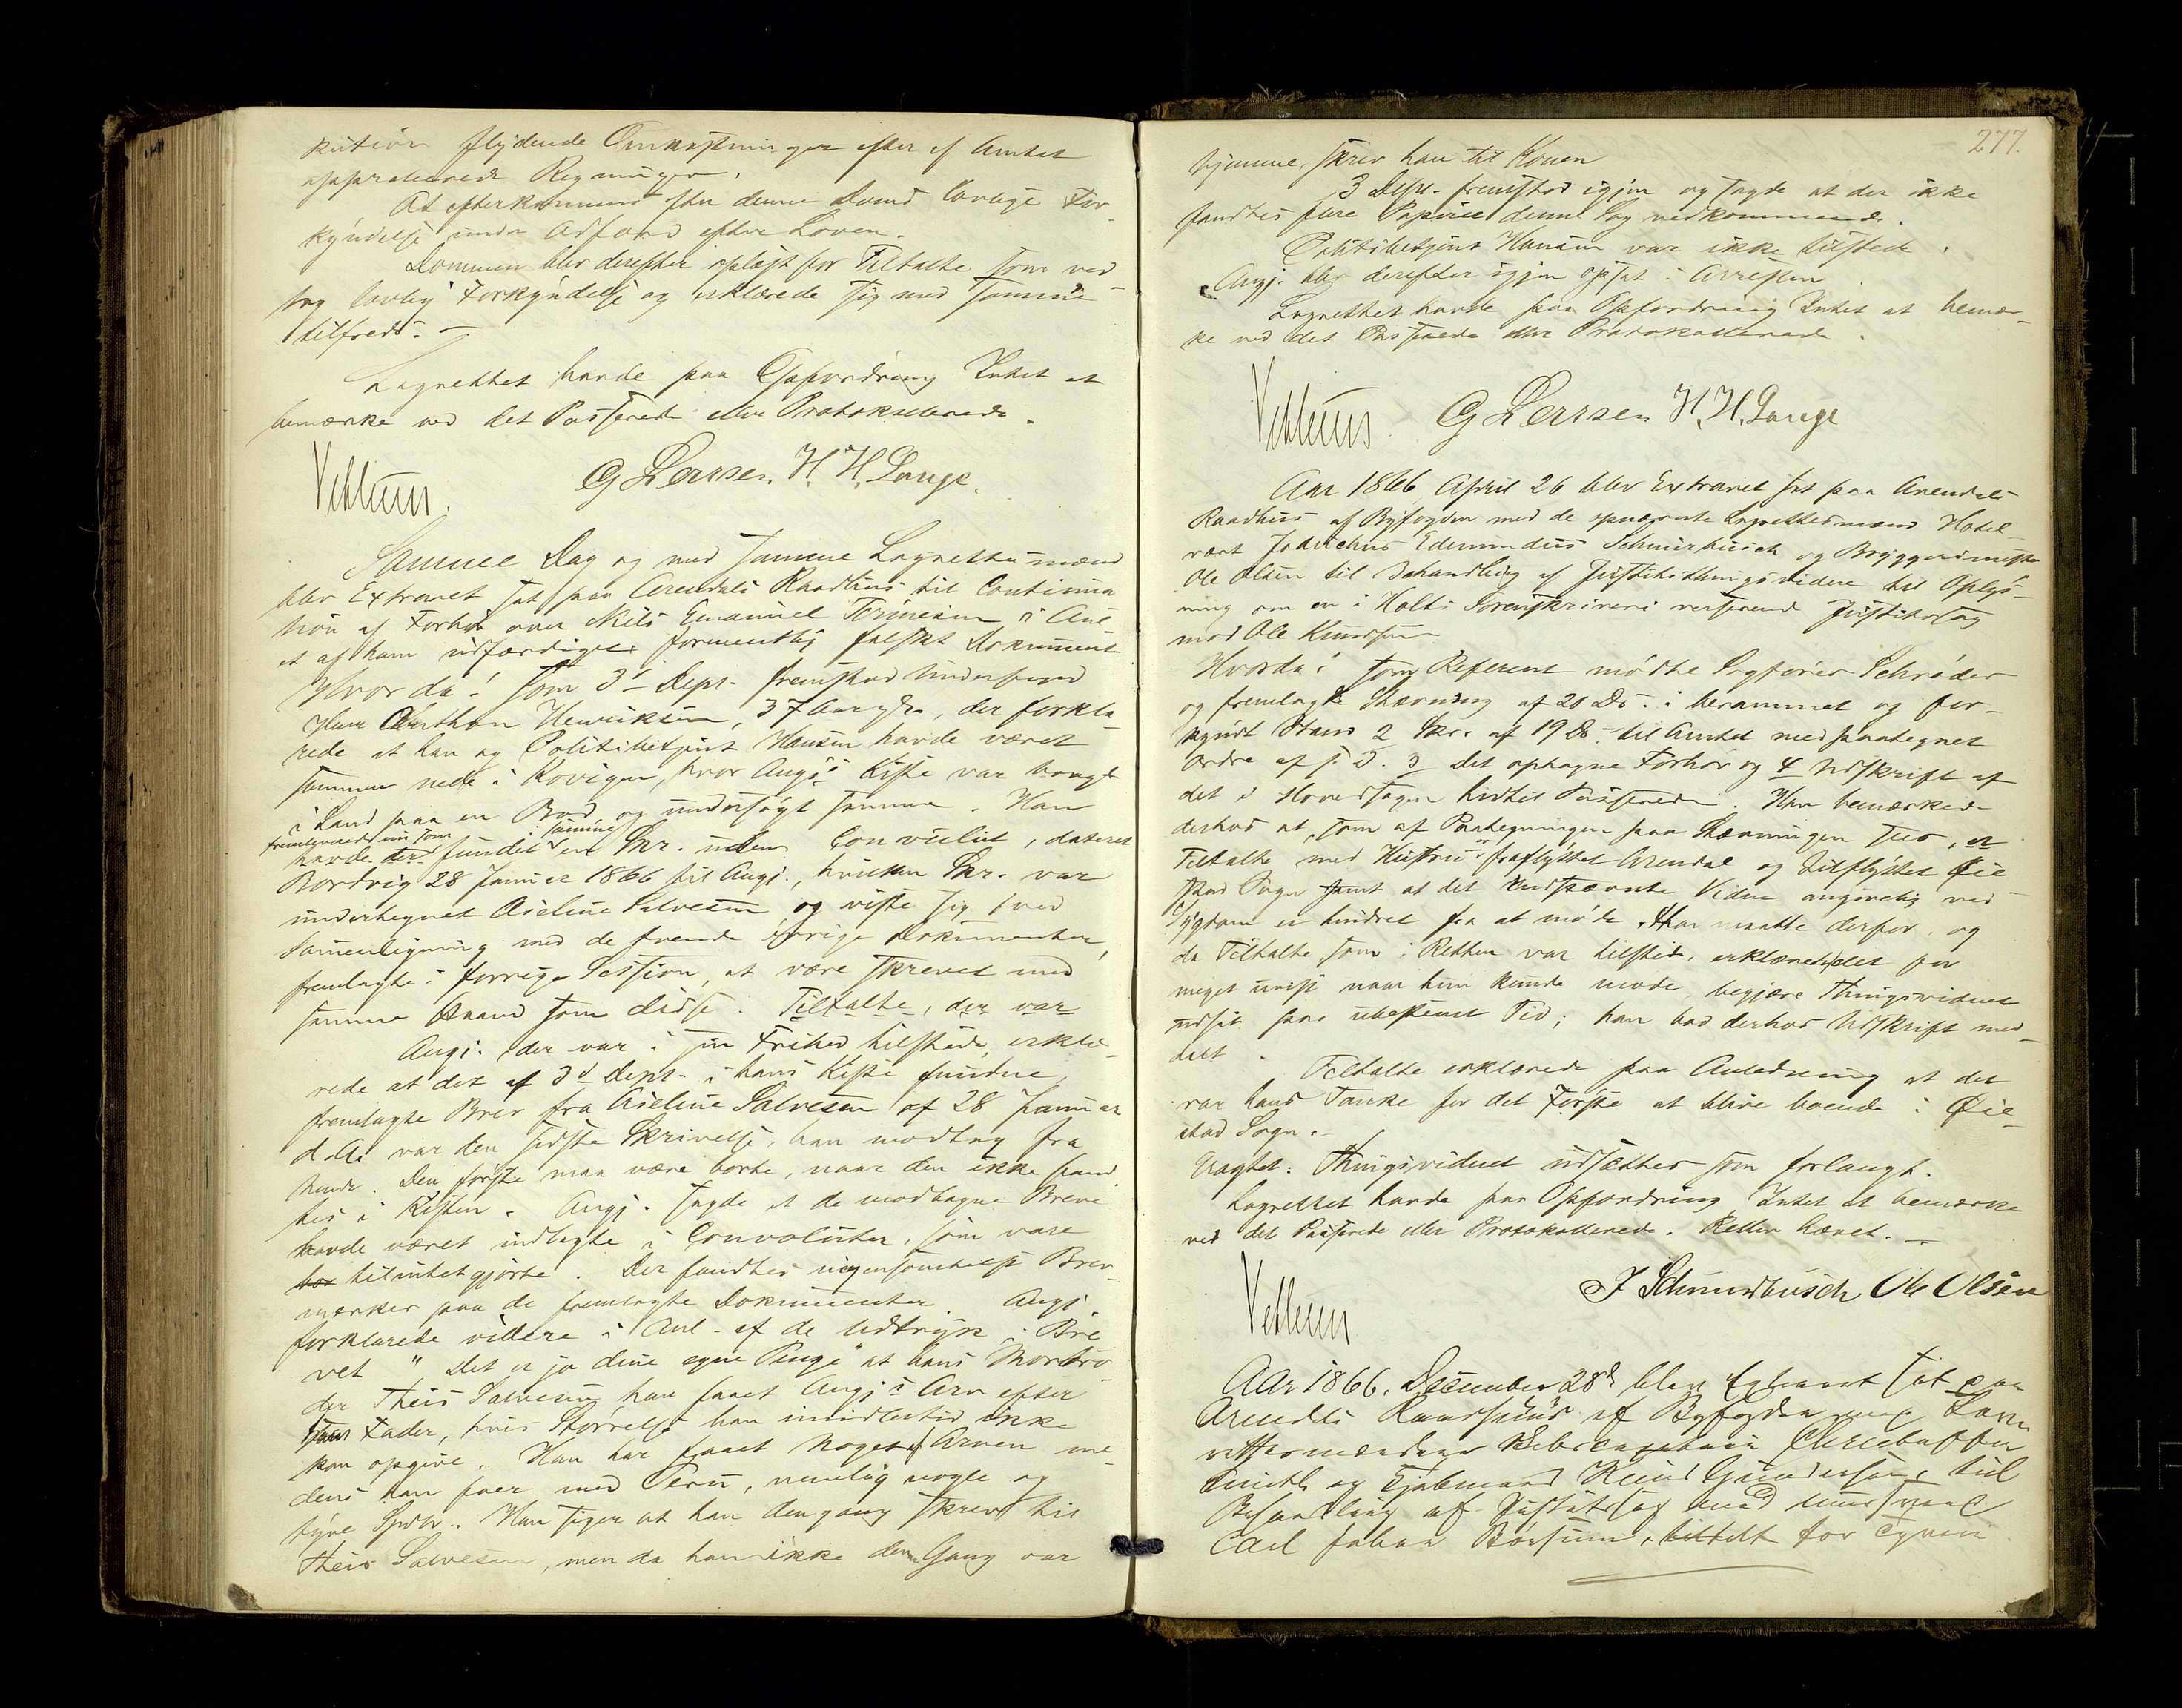 kution flydende Omkostninger efter af Amtet
approberede Regninger.
At efterkommes efter denne Doms lovlige For-
kyndelse under Adfærd efter Loven.
Dommen blev derefter oplæst for Tiltalte som ved-
tog lovlig Forkyndelse og erklærede sig med samme
tilfreds. –
Lagrettet havde paa Opfordring Intet at
bemærke ved det Passerede eller Protokollerede.
Vehlum. G Lerssen H. H. Lange.
Samme Dag og med samme Lagrettesmænd
blev Extraret sat paa Arendals Raadhus til Continua-
tion af Forhør over Nils Emanuel i Anl
et af ham udfærdiget formentlig falskt Dokument
Hvorda: som 3die Depr. fremstod Underfoged
Hans Henriksen, 37 Aar gl., der forkla-
rede at han og Politibetjent Hansen havde været
sammen nede i Kovigen, hvor Angj.s Kiste var bragt
i Land paa en Baad og undersøgt samme. Han
fremleverede nu som
havde der fundet i samme en Skr. uden Convolut, dateret
Bordvig 28 Januar 1866 til Angj., hvilken Skr. var
undertegnet Aseline Salvesen og viste sig, ved
Sammenligning med de øvrige Dokumenter,
fremlagte i forrige Session, at være skrevet med
samme Haand som disse. Tiltalte, der var
Angj. der var i sin Frihed tilstede, erklæ-
rede at det af 3d Depr. i hans Kiste fundne
fremlagte Brev fra Aseline Salvesen af 28 Januar
d. A. var den sidste Skrivelse, han modtog fra
hende. Den første maa være borte, naar den ikke fand-
tes i Kisten. Angj. sagde at de modtagne Breve
havde været indlagte i Convoluter, som vare
tilintetgjorte. Der fandtes ingensomhelst Brev-
mærker paa de fremlagte Dokumenter. Angj.
forklarede videre i Anl. af de Udtryk i Bre-
vet "Det er jo dine egne Penge" at hans Morbro-
der Theis Salvesen har faaet Angj.s Arv efter
hans Fader, hvis Størrelse han imidlertid ikke
kan opgive. Han har faaet Noget af Arven me-
dens han foer med Teru, nemlig nogle og
tyve Spdlr. Han siger at han dengang skrev til
Theis Salvesen, men da han ikke den Gang var
277.
hjemme, skrev han til Konen
3 Depr. fremstod igjen og sagde at der ikke
fandtes flere Papirer denne Sag vedkommende.
Politibetjent Hansen var ikke tilstede.
Angj. blev derefter igjen opsat i Arresten
Lagrettet havde paa Opfordring Intet at bemær-
ke ved det Passerede eller Protokollerede.
Vehlum G Lerssen H. H. Lange
Aar 1866 April 26 blev Extraret sat paa Arendals
Raadhus af Byfogden med de opnævnte Lagrettesmænd Hotel-
vært Edemundus Schmidbusch og Bryggerimester
Ole Olsen til Behandling af Justitsthingsvidne til Oplys-
ning om en i Holts Sorenskriveri verserende Justitssag
mod Ole Knudsen
Hvorda: som Referent mødte Sagfører Schrøder
og fremlagde Stævning af 20 Ds. i berammet og for-
kyndt Stand 2 Skr. af 19 Ds. til Amtet med paategnet
Ordre af s. D. 3 det optagne Forhør og 4 Udskrift af
det i Hovedsagen hidtil Passerede. Han bemærkede
derhos at, som af Paategningen paa Stævningen sees, er
Tiltalte med Hustru fraflyttet Arendal og tilflyttet Øie-
stad Sogn samt at det indstævnte Vidne angivelig ved
Sygdom er hindret fra at møde. Han maatte derfor, og
da Tiltalte som i Retten var tilstede, erklærede det for
meget uvist naar hun kunde møde, begjære Thingsvidnet
udsat paa ubestemt Tid; han bad derhos Udskrift med-
delt.
Tiltalte erklærede paa Anledning at det
var hans Tanke for det Første at blive boende i Øie-
stad Sogn. –
Eragtet: Thingsvidnet udsættes som forlangt.
Lagrettet havde paa Opfordring Intet at bemærke
ved det Passerede eller Protokollerede. Retten hævet. –
Vehlum J Schmidbusch Ole Olsen
Aar 1866. December 28de blev Extraret sat paa
Arendals Raadhuus af Byfogden med Laug-
rettesmændene Skibscapitain
Smith og Knud Gundersen, til
Behandling af Justitssag mod
Carl Johan Borsum, tiltalt for Tyveri